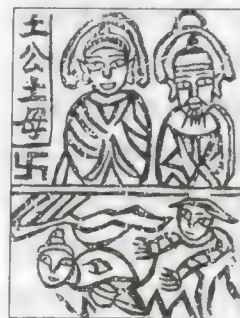 土公土母
卐